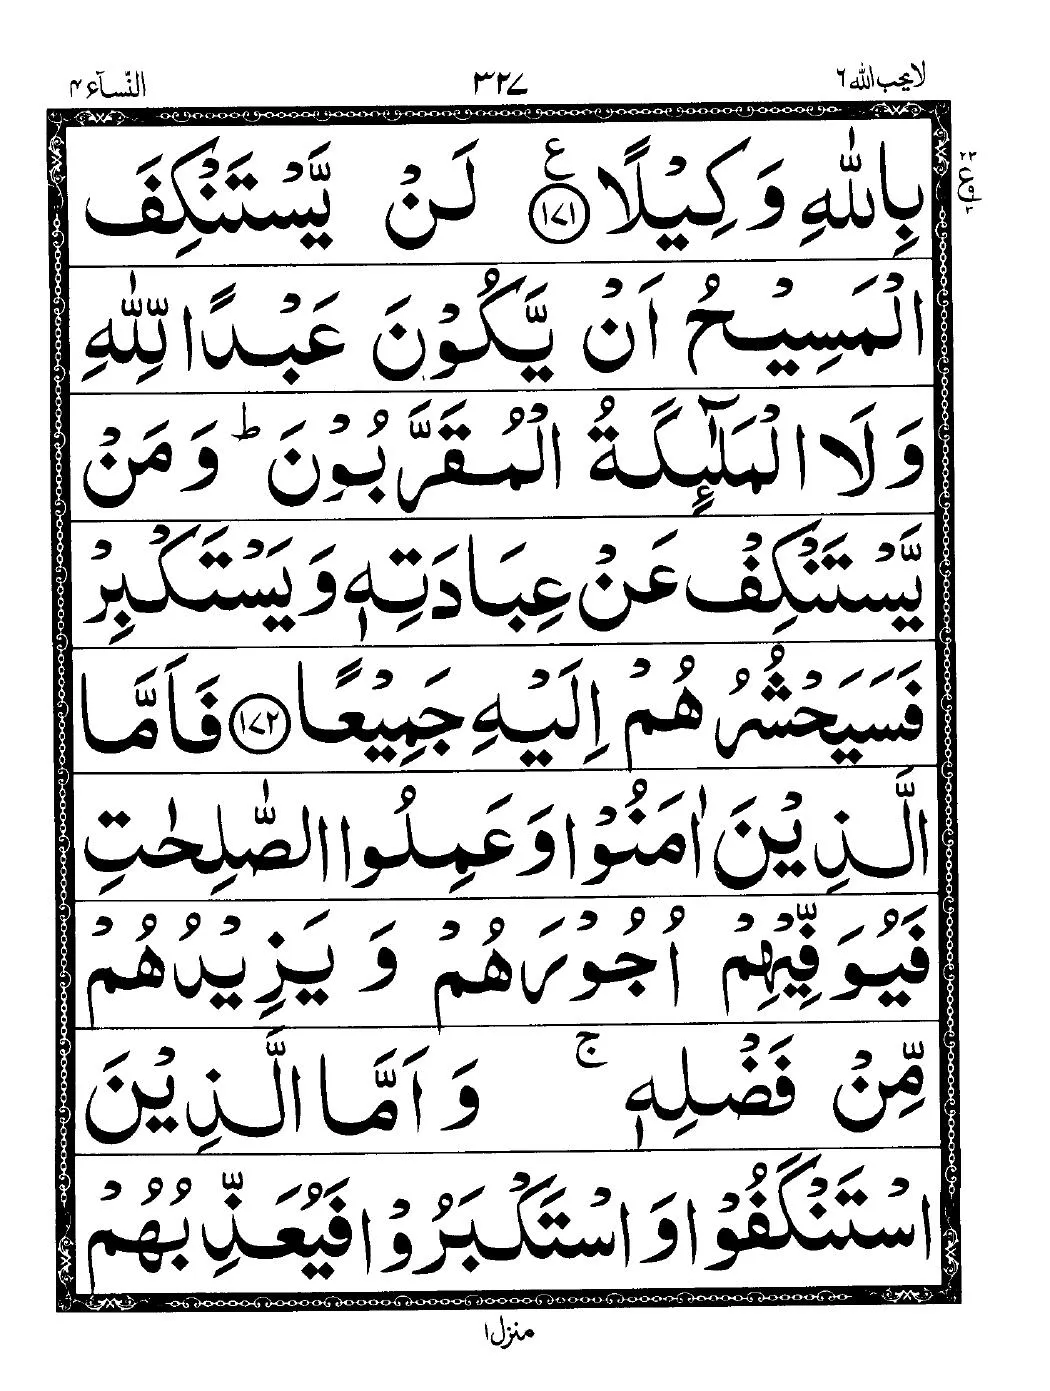 لا یحب الله ٦ ٣٢٧ النسآء ٤
بِاللّٰهِ وَكِيْلًا ﴿١٧١﴾ ع لَنْ يَّسْتَنْكِفَ
٢٣ ع ٣
الْمَسِيْحُ اَنْ يَّكُوْنَ عَبْدًا لِّلّٰهِ
وَلَا الْمَلٰٓئِكَةُ الْمُقَرَّبُوْنَ ؕ وَمَنْ
يَّسْتَنْكِفْ عَنْ عِبَادَتِهٖ وَيَسْتَكْبِرْ
فَسَيَحْشُرُهُمْ اِلَيْهِ جَمِيْعًا ﴿١٧٢﴾ فَاَمَّا
الَّذِيْنَ اٰمَنُوْا وَعَمِلُوا الصّٰلِحٰتِ
فَيُوَفِّيْهِمْ اُجُوْرَهُمْ وَيَزِيْدُهُمْ
مِّنْ فَضْلِهٖ ۚ وَاَمَّا الَّذِيْنَ
اسْتَنْكَفُوْا وَاسْتَكْبَرُوْا فَيُعَذِّبُهُمْ
منزل ١